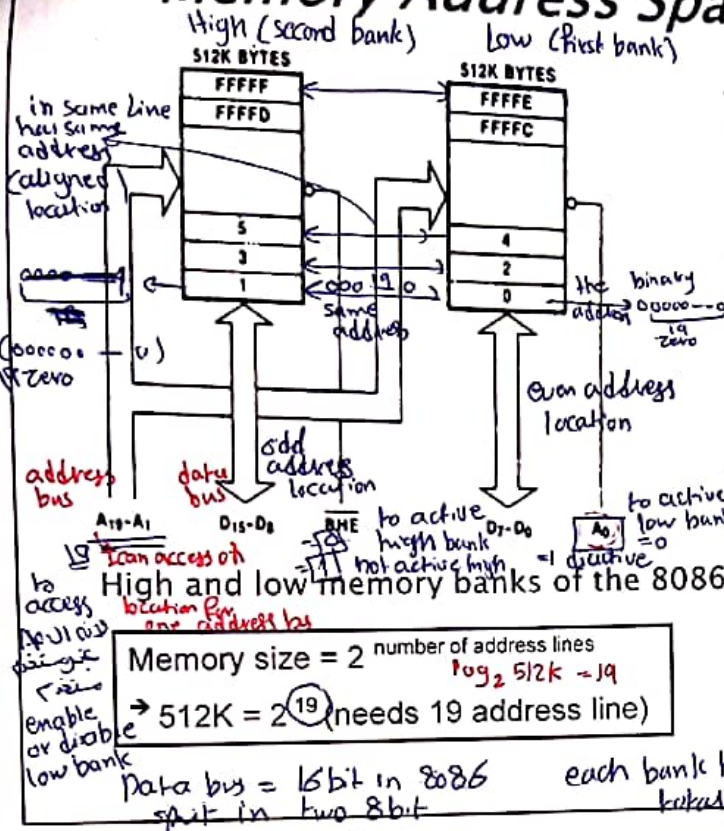 Memory Address Spa
High (second bank)
Low (first bank)
512K BYTES
512K BYTES
FFFFF
FFFFD
5
3
1
FFFFE
FFFFC
4
2
0
in same line
has same
address
(aligned
location
000 19 0
same
address
the
address
binary
00000---0
19
zero
(000000 — 0)
19 zero
even address
location
odd
address
location
address
bus
data
bus
A19-A1
D15-D8
BHE
D7-D0
A0
19
I can access on
location for
one address bus
to active
high bank
=0
=1 not active high
to active
low bank
=0
=1 disactive
High and low memory banks of the 8086
to
access
enable
or disable
low bank
Memory size = 2 number of address lines
log2 512K = 19
→ 512K = 2 19 (needs 19 address line)
Data bus = 16bit in 8086
split in two 8bit
each bank